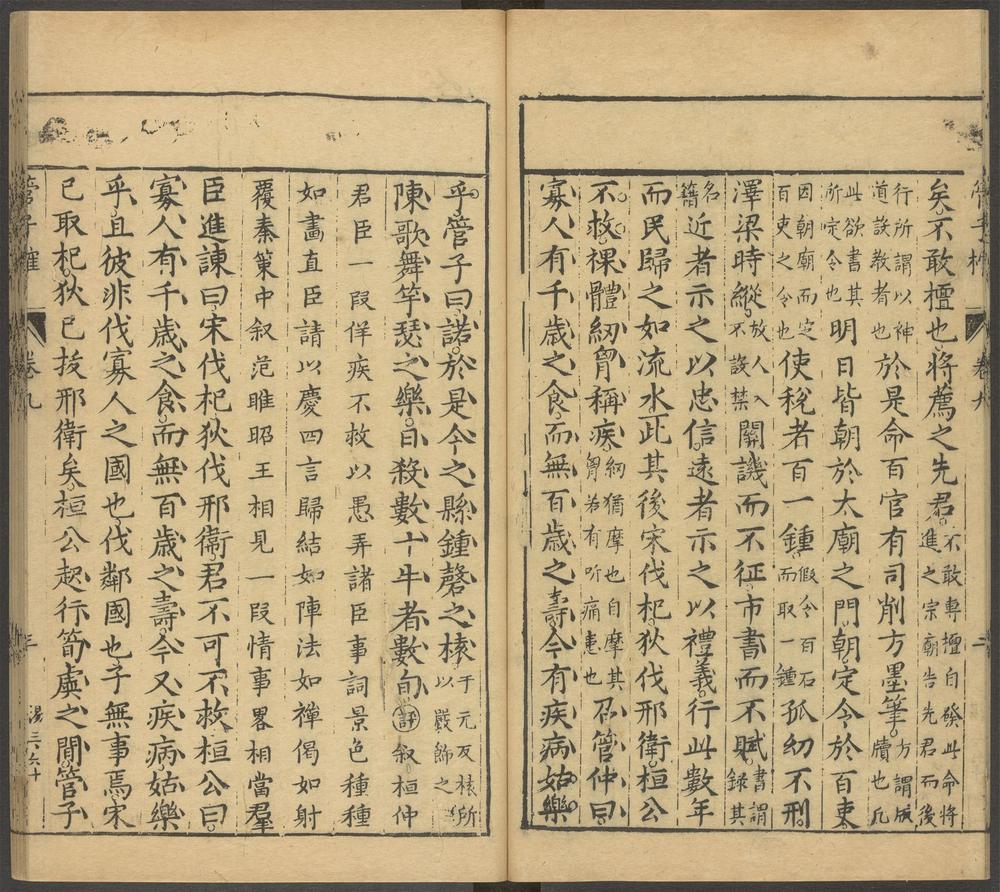 矣不敢擅也將薦之先君不敢專擅自發此命將進之宗廟告先君而後
行所謂以神道設教者也於是命百官有司削方墨筆方謂版牘也凡
此欲書其所定令也明日皆朝於太廟之門朝定令於百吏
因朝廟而定百吏之令也使稅者百一鍾假令百石而取一鍾孤幼不刑
澤梁時縱放人入不設禁關譏而不征市書而不賦書謂錄其
名籍近者示之以忠信遠者示之以禮義行此數年
而民歸之如流水此其後宋伐杞狄伐邢衛桓公
不救裸體紉胷稱疾紉猶摩也自摩其胷若有所痛患也召管仲曰
寡人有千歲之食而無百歲之壽今有疾病姑樂
乎管子曰諾於是令之縣鍾磬之榬于元反榬所以嚴飾之
陳歌舞竽瑟之樂日殺數十牛者數旬評叙桓仲
君臣一叚佯疾不救以愚弄諸臣事詞景色種種
如畫直臣請以慶四言歸結如陣法如禪偈如射
覆秦策中叙范雎昭王相見一叚情事畧相當羣
臣進諫曰宋伐杞狄伐邢衛君不可不救桓公曰
寡人有千歲之食而無百歲之壽今又疾病姑樂
乎且彼非伐寡人之國也伐鄰國也子無事焉宋
已取杞狄已拔邢衛矣桓公起行筍虡之間管子
卷九
三
湯三六十